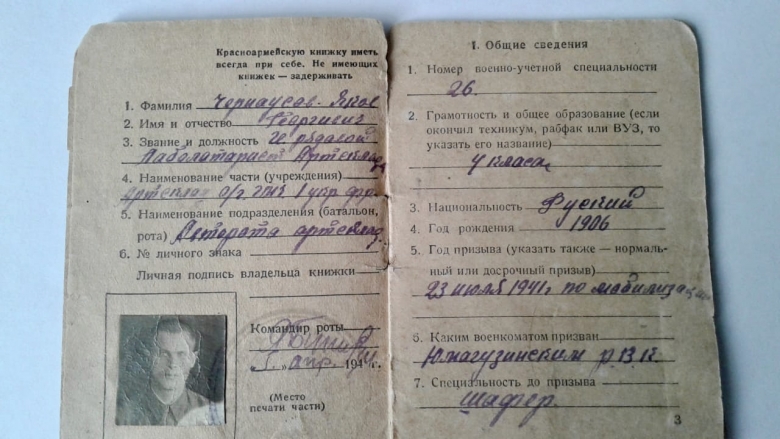 Красноармейскую книжку иметь
всегда при себе. Не имеющих
книжек — задерживать
1. Фамилия Чернаусов Яков
2. Имя и отчество Георгиевич
3. Звание и должность
Артсклад
4. Наименование части (учреждения)
Артсклад 1 упр. фр.
5. Наименование подразделения (батальон,
рота) Авторота артсклад.
6. № личного знака
Личная подпись владельца книжки
Командир роты
апр. 194 г.
(Место
печати части)
1. Общие сведения
1. Номер военно-учетной специальности
26.
2. Грамотность и общее образование (если
окончил техникум, рабфак или ВУЗ, то
указать его название)
4 класа
3. Национальность Руский
4. Год рождения 1906
5. Год призыва (указать также — нормаль-
ный или досрочный призыв)
23 июля 1941г по мобилизац
6. Каким военкоматом призван
Юмагузинским р.в.к.
7. Специальность до призыва
шафер.
3